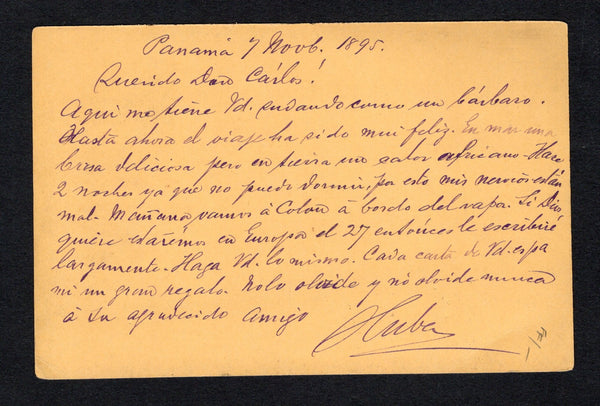 Panamá 7 Novb. 1895.
Querido Don Cárlos!
Aqui me tiene Vd. sudando como un bárbaro.
Hasta ahora el viaje ha sido mui feliz. En mar una
brisa deliciosa pero en tierra un calor africano - Hace
2 noches ya que no puedo dormir, por esto mis nervios están
mal - Mañana vamos à Colon à bordo del vapor. Si Dios
quiere estarémos en Europa el 27 entonces le escribiré
largamente - Haga Vd. lo mismo. Cada carta de Vd. es pa
mi un gran regalo. No lo olvide y nó olvide nunca
à su agradecido amigo